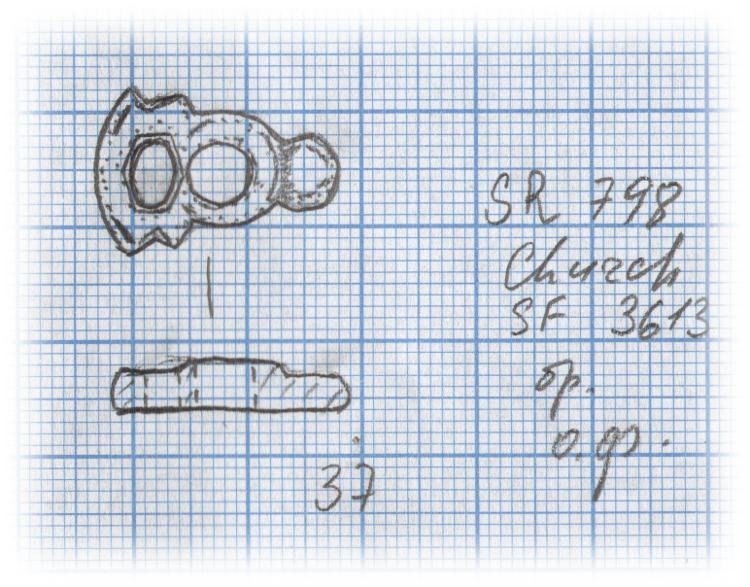 SR 798
Church
SF 3613
ор.
о.ф.
37